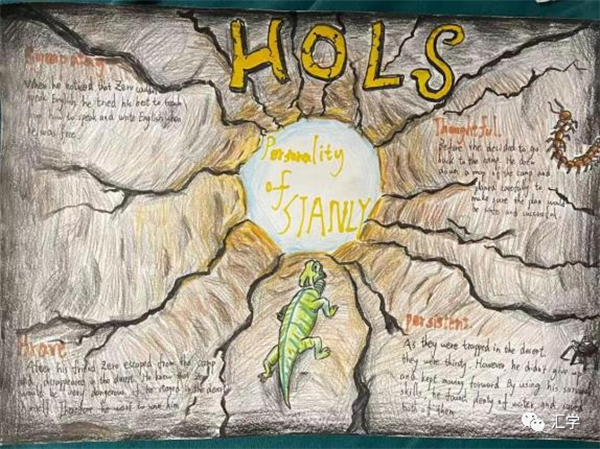 HOLS
Personality
of
STANLY
When he noticed that Zero couldn't
speak English, he tried his best to teach
him to speak and write English when
he was free.
Thoughtful.
Before the decided to go
back to the camp. He drew
down a map of the camp and
planed carefully to
make sure the plan would
be safe and successful.
Brave
After his friend Zero escaped from the camp
and disappeared in the desert. He knew that
would be very dangerous if he stayed in the desert
himself. Therefore he went to save him
persistent
As they were trapped in the desert
they were thirsty. However he didn't give
and kept moving forward. By using his survival
skills, he found plenty of water, and saved
both of them.
汇学